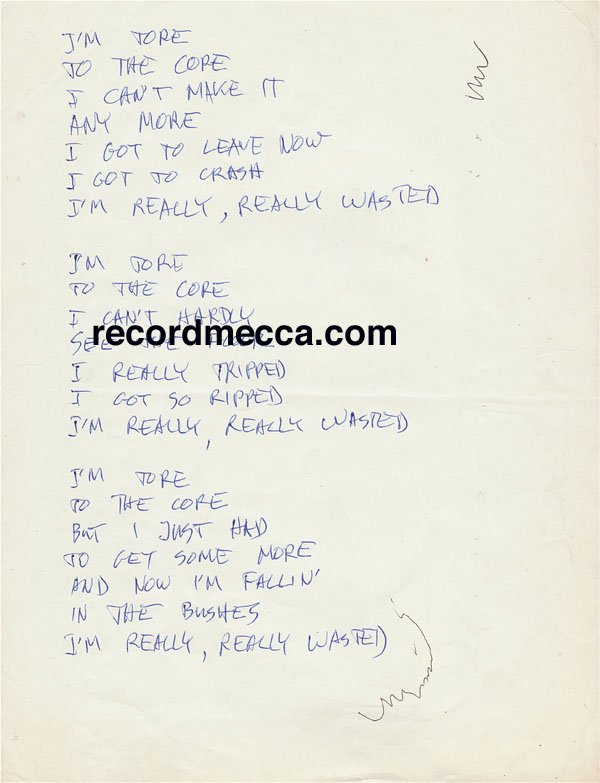 I'M TORE
TO THE CORE
I CAN'T MAKE IT
ANY MORE
I GOT TO LEAVE NOW
I GOT TO CRASH
I'M REALLY, REALLY WASTED
I'M TORE
TO THE CORE
I CAN'T HARDLY
recordmecca.com
SEE THE FLOOR
I REALLY TRIPPED
I GOT SO RIPPED
I'M REALLY, REALLY WASTED
I'M TORE
TO THE CORE
BUT I JUST HAD
TO GET SOME MORE
AND NOW I'M FALLIN'
IN THE BUSHES
I'M REALLY, REALLY WASTED